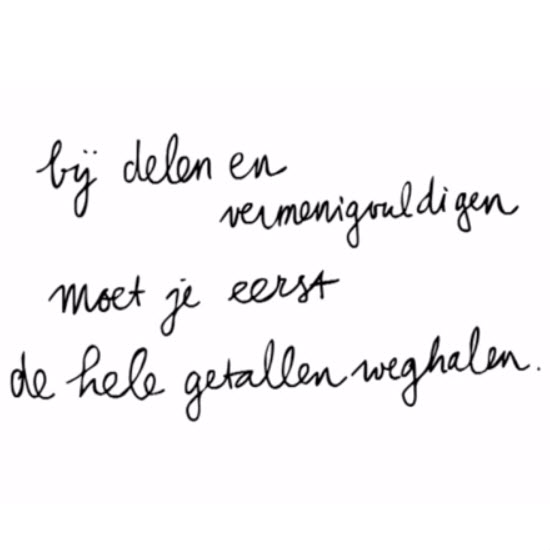 bij delen en
vermenigvuldigen
moet je eerst
de hele getallen weghalen.